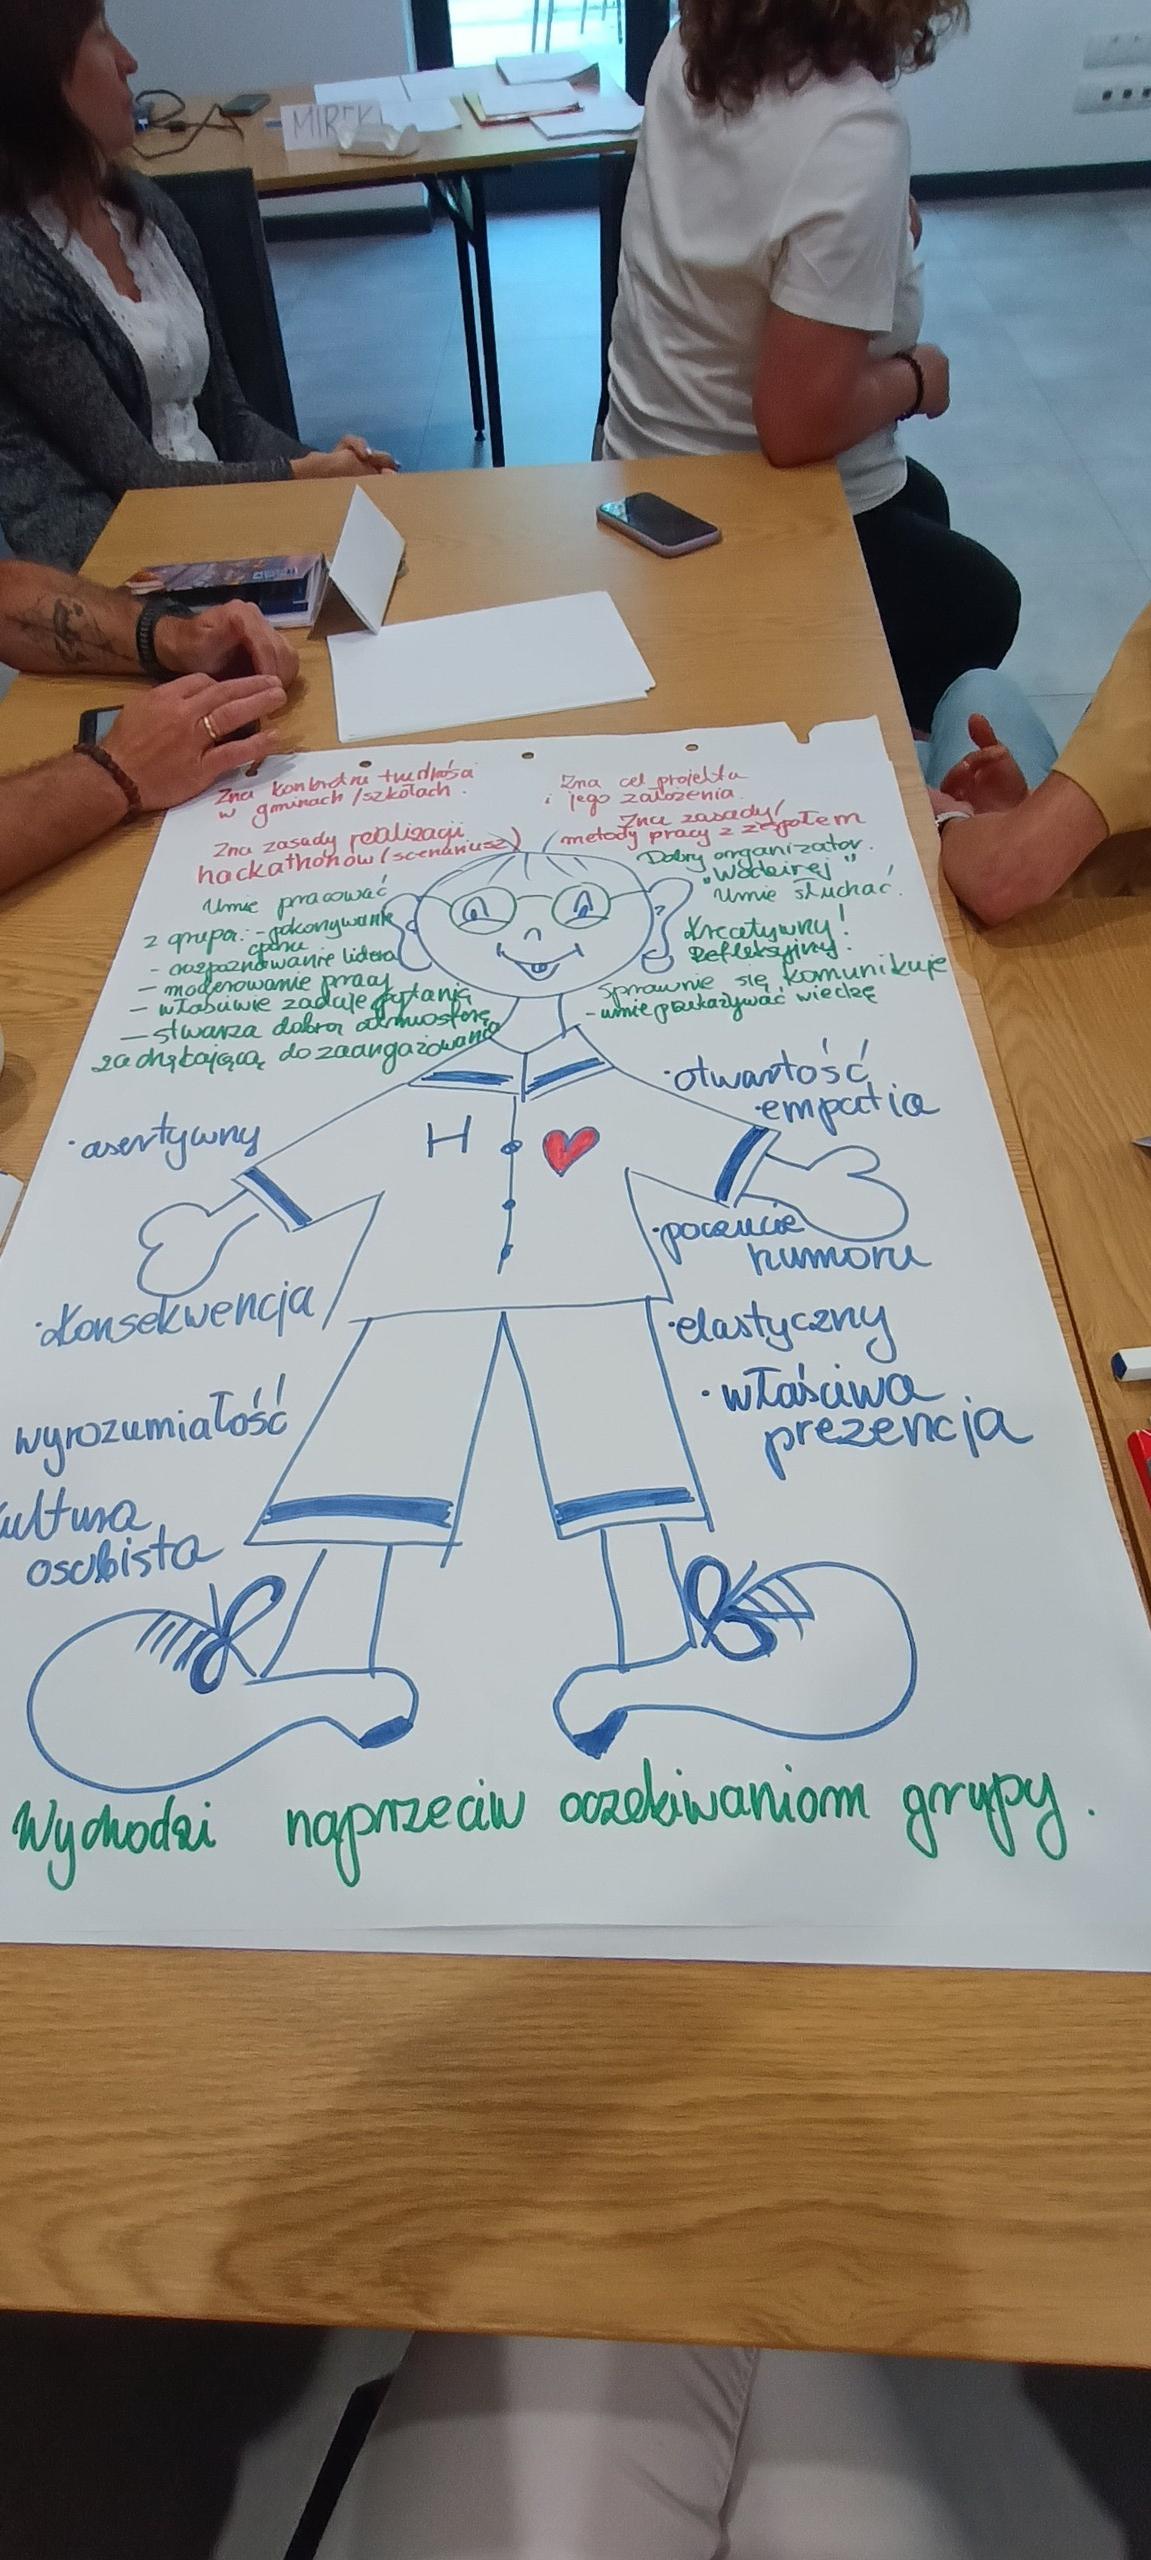 MIREK
Zna konkretne trudności
w gminach/szkołach.
Zna zasady realizacji
hackathonów (scenariusz)
Zna cel projektu
i jego założenia.
Zna zasady/
metody pracy z zespołem
Umie pracować
z grupą: - pokonywanie
oporu
- rozpoznawanie lidera
- moderowanie pracy
- właściwie zadaje pytania
- stwarza dobrą atmosferę
zachęcającą do zaangażowania
Dobry organizator.
"Wodzirej"
Umie słuchać.
Kreatywny!
Refleksyjny!
Sprawnie się komunikuje
- umie przekazywać wiedzę
• asertywny
H
• otwartość
• empatia
• poczucie
humoru
• konsekwencja
• elastyczny
• właściwa
prezencja
wyrozumiałość
kultura
osobista
Wychodzi naprzeciw oczekiwaniom grupy.